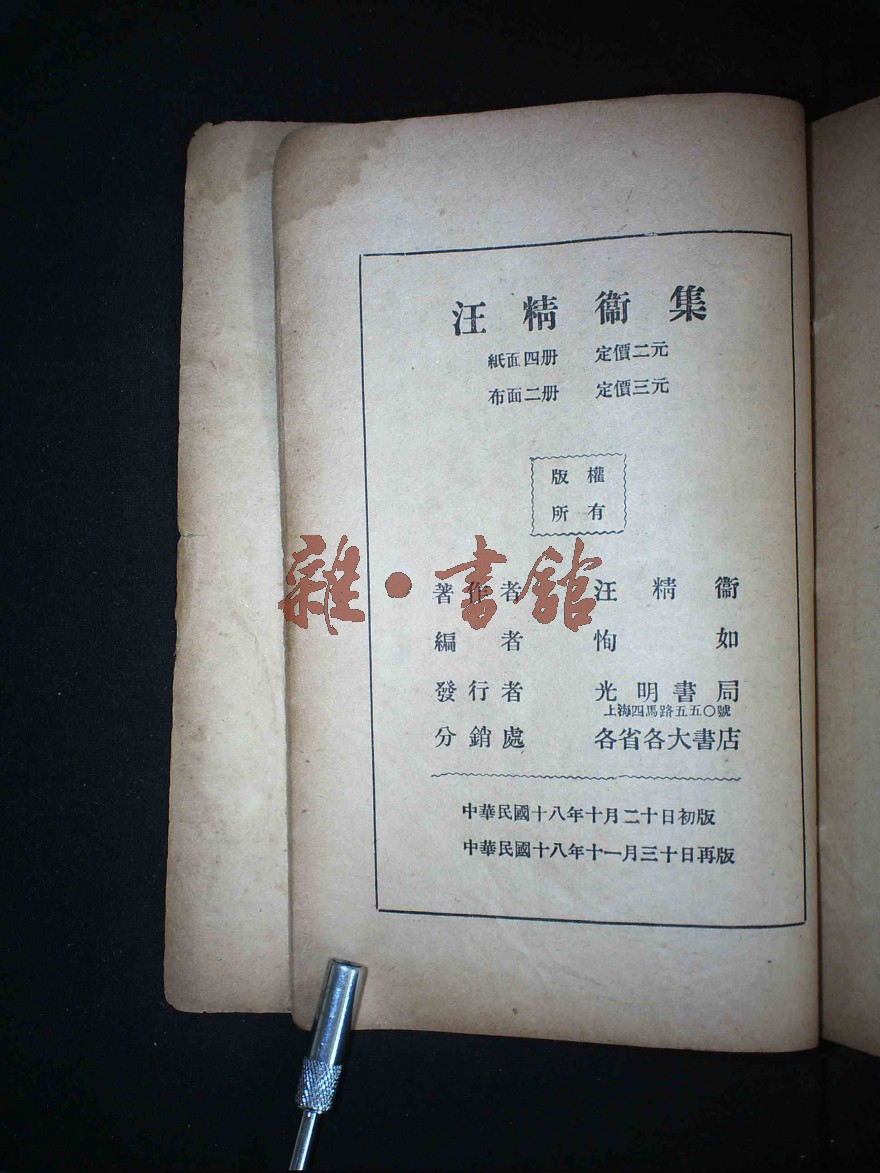 汪精衞集
紙面四册 定價二元
布面二册 定價三元
版權
所有
雜·書館
著作者 汪精衞
編者 恂如
發行者 光明書局
上海四馬路五五〇號
分銷處 各省各大書店
中華民國十八年十月二十日初版
中華民國十八年十一月三十日再版